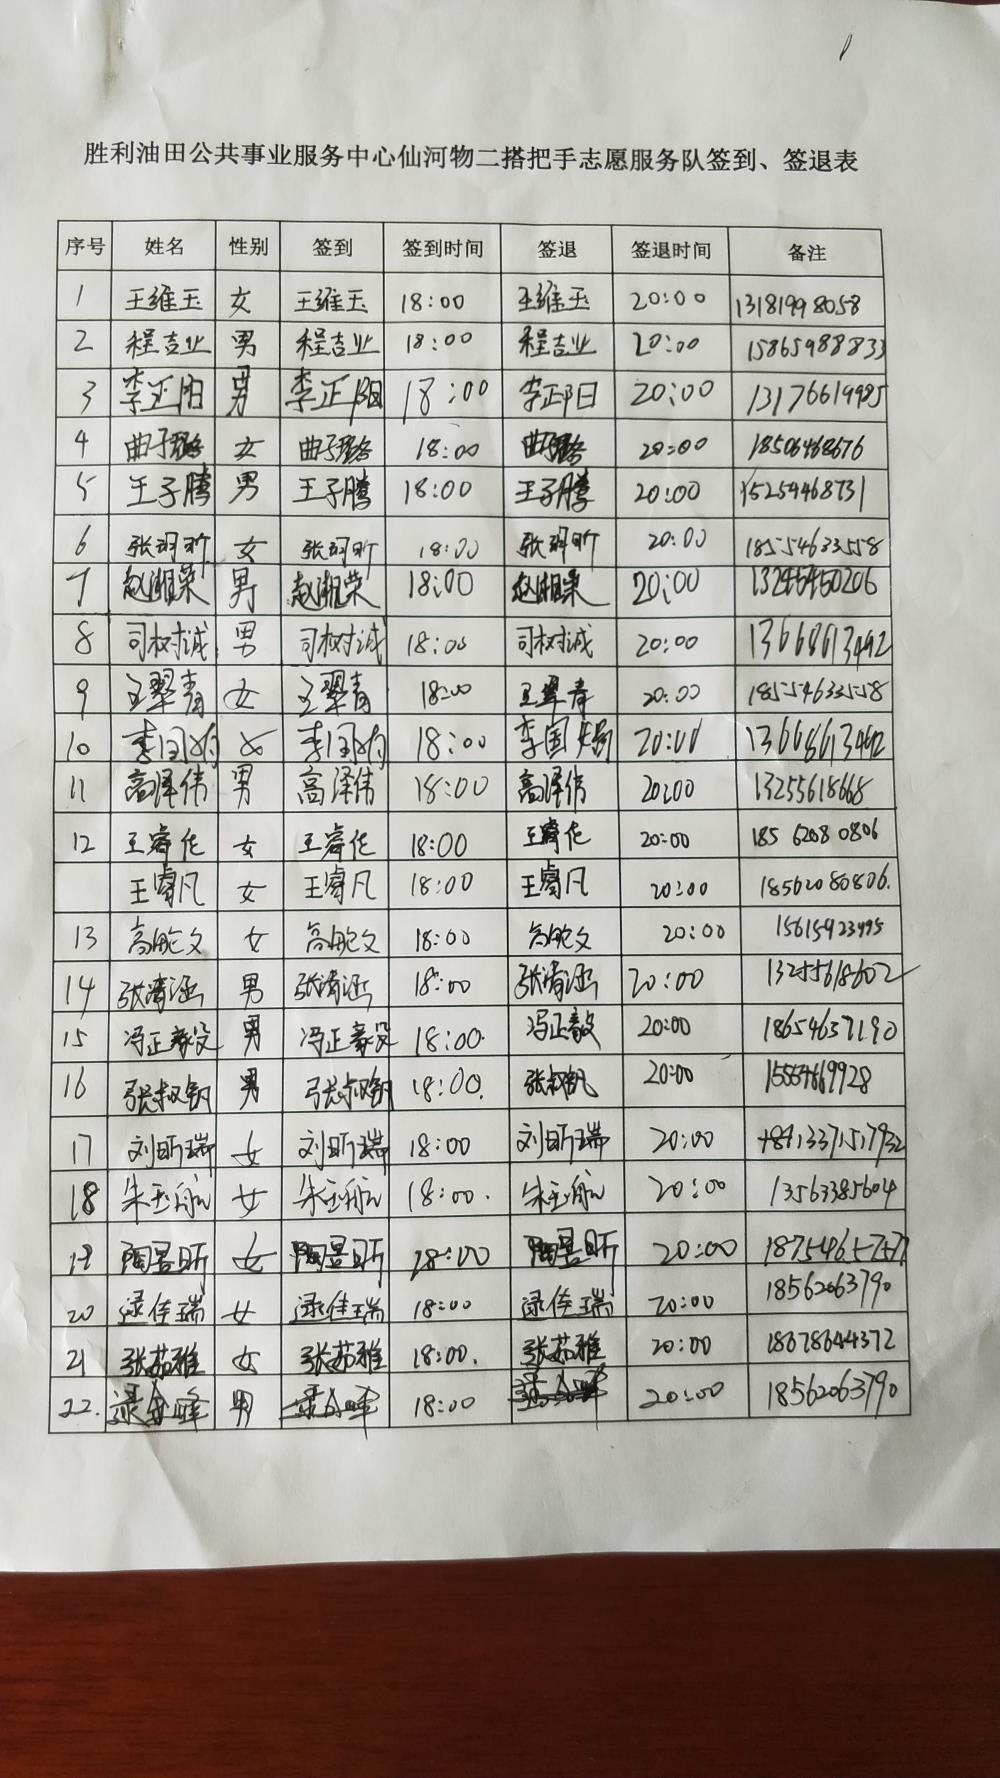 胜利油田公共事业服务中心仙河物二搭把手志愿服务队签到、签退表
序号 姓名 性别 签到 签到时间 签退 签退时间 备注
1 王维玉 女 王维玉 18:00 王维玉 20:00 13181998058
2 程吉业 男 程吉业 18:00 程吉业 20:00 15865988833
3 李正阳 男 李正阳 18:00 李正阳 20:00 13176619985
4 女 18:00 20:00 18506468676
5 王子腾 男 王子腾 18:00 王子腾 20:00 15254468731
6 女 18:00 20:00 18554633558
7 赵湘荣 男 赵湘荣 18:00 赵湘荣 20:00
8 司树诚 男 司树诚 18:00 司树诚 20:00 13668613492
9 王翠青 女 王翠青 18:00 王翠青 20:00 18554633558
10 女 18:00 20:00 13668613492
11 高泽伟 男 高泽伟 18:00 高泽伟 20:00 13255618668
12 王睿佗 女 王睿佗 18:00 王睿佗 20:00 185 6208 0806
王睿凡 女 王睿凡 18:00 王睿凡 20:00 18562080806.
13 女 18:00 20:00 15615923495
14 张清涵 男 张清涵 18:00 张清涵 20:00 13255618602
15 冯正毅 男 冯正毅 18:00. 冯正毅 20:00 18654637190
16 男 18:00. 20:00
17 刘昕瑞 女 刘昕瑞 18:00 刘昕瑞 20:00
18 朱玉航 女 朱玉航 18:00. 朱玉航 20:00 13563385604
19 陶昱昕 女 陶昱昕 18:00 陶昱昕 20:00
20 逯佳瑞 女 逯佳瑞 18:00 逯佳瑞 20:00 18562063790
21 张茹雅 女 张茹雅 18:00. 张茹雅 20:00 18678644372
22. 男 18:00 20:00 18562063790